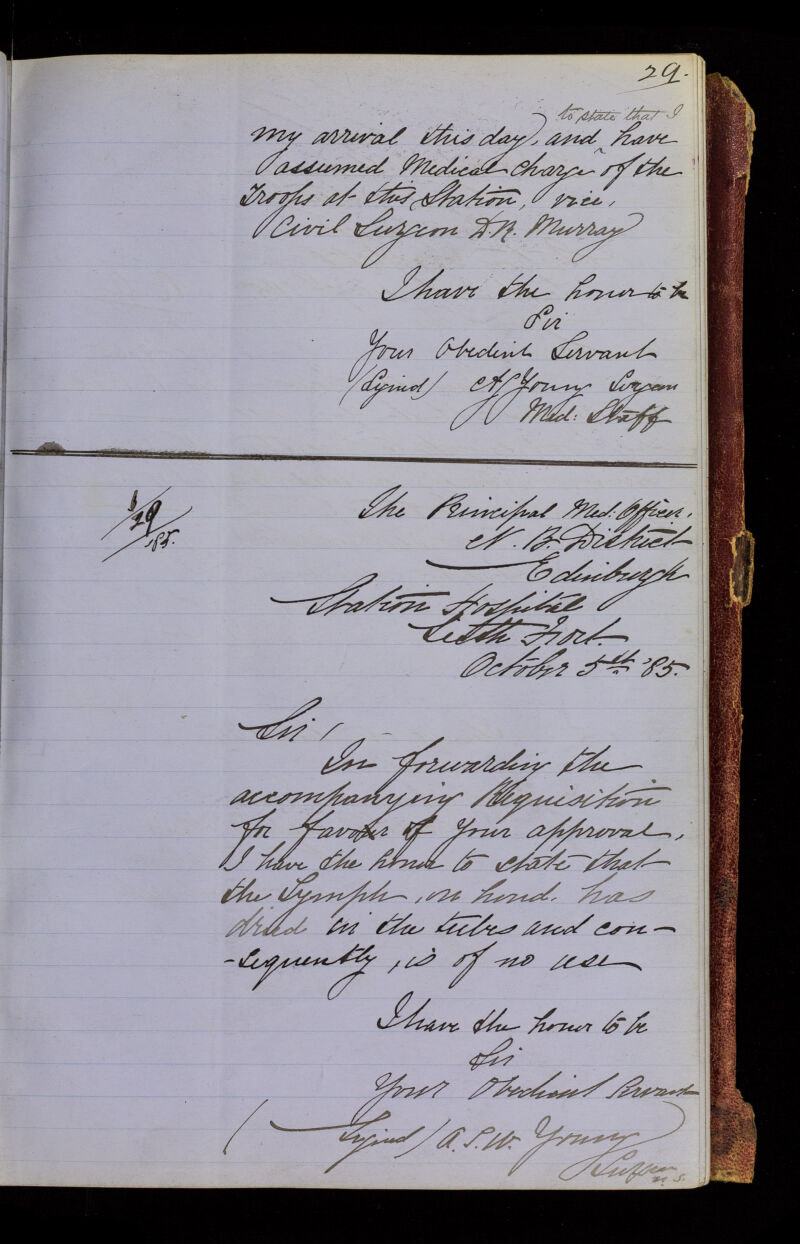 29.
to state that I
my arrival this day, and have
assumed Medical charge of the
Troops at this Station, vice,
Civil Surgeon D.R. Murray
I have the honor to be
Sir
Your Obedient Servant
(Signed) Young Surgeon
Med: Staff
1/29/85.
The Principal Med. Officer.
N. B. District
Edinburgh
Station Hospital
Leith Fort.
October 5th '85.
Sir,
In forwarding the
accompanying Requisition
for favour of your approval,
I have the honor to state that
the Lymph, on hand, has
dried in the tubes and con-
-sequently, is of no use
I have the honor to be
Sir
Your Obedient Servant
(Signed) A.S.W. Young
Surgeon
M.S.